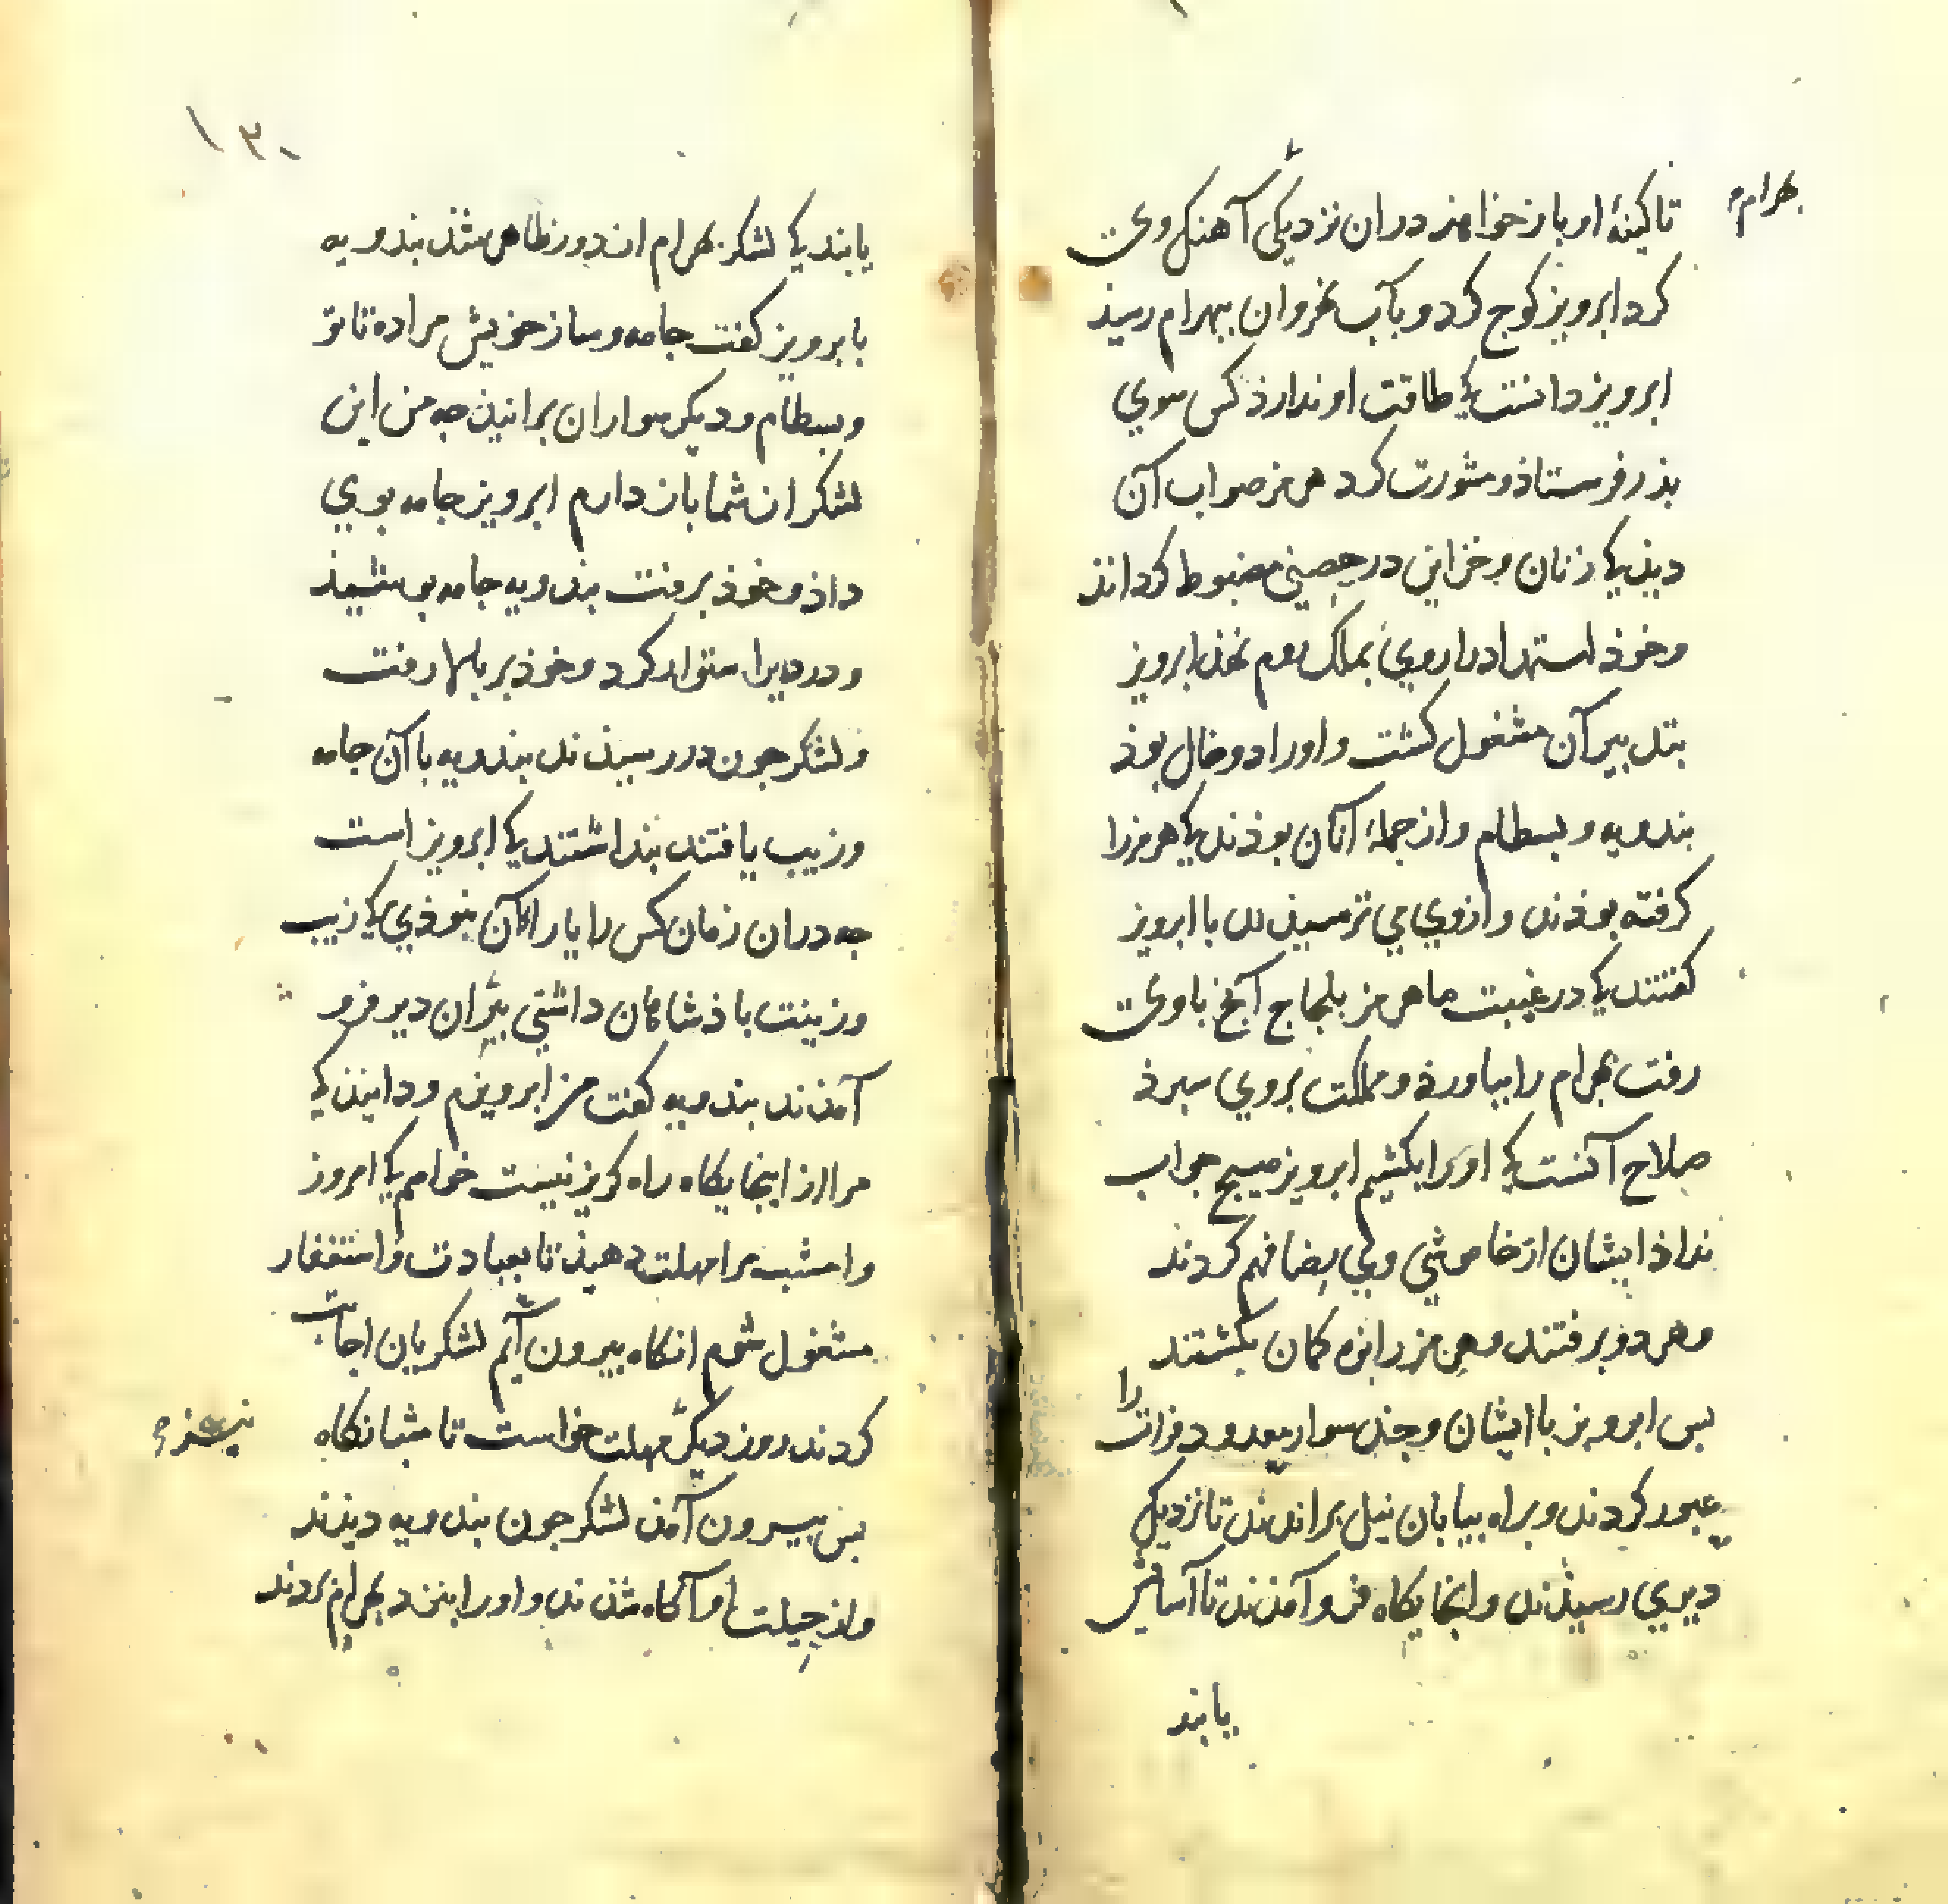 بهرام
تا کینهٔ او باز خواهذ در ان نزدیکی آهنک وی
کرد ابرویز کوج کرد و بآب نهروان ببهرام رسیذ
ابرویز دانست که طاقت او ندارذ کس سوی
بذر فرستاذ و مشورت کرد هرمز صواب آن
دیذ که زنان و خزاین در حصنی مضبوط کرداند
و خوذ استمداد را روی بملک روم نهذ ابرویز
بتدبیر آن مشغول کشت و او را دو خال بوذ
بندویه و بسطام و از جملهٔ آنان بوذند که هرمز را
کرفته بوذند و ازوی می ترسیذند با ابرویز
کفتند که در غیبت ما هرمز بلجاج آنج با وی
رفت بهرام را بیاورذ و مملکت بروی سبرذ
صلاح آنست که او را بکشیم ابرویز هیچ جواب
نداذ ایشان از خاموشی وی رضا فهم کردند
و هر دو برفتند و هرمز را بزه کمان بکشتند
بس ابرویز با ایشان و جند سوار دو فرات را
عبور کردند و براه بیابان نیل براندند تا نزدیک
دیری رسیذند و اینجایکاه فرو آمذند تا آسایش
یابند
۱۳۰
یابند که لشکر بهرام از دور ظاهر شذند بندویه
با برویز کفت جامه و ساز خویش مرا ده تا تو
و بسطام و دیکر سواران برانیذ جه من این
لشکر از شما باز دارم ابرویز جامه بوی
داذ و خوذ برفت بندویه جامه بوشیذ
و در دیر استوار کرد و خوذ بر بالا رفت
و لشکر جون در رسیذند بندویه با آن جامه
و زیب یافتند بنداشتند که ابرویز است
جه در ان زمان کس را یارا آن نبوذی که زیب
و زینت باذشاهان داشتی بیران دیر فرو
آمذند بندویه کفت من ابرویزم و دانیذ که
مرا از اینجایکاه راه کریز نیست خواهم که امروز
و امشب مرا مهلت دهیذ تا بعبادت و استغفار
مشغول شوم انکاه بیرون آیم لشکریان اجابت
کردند روز دیکر مهلت خواست تا شبانکاه
بس بیرون آمذ لشکر جون بندویه دیذند
و از حیلت او آکاه شذند و او را بنزد بهرام بردند